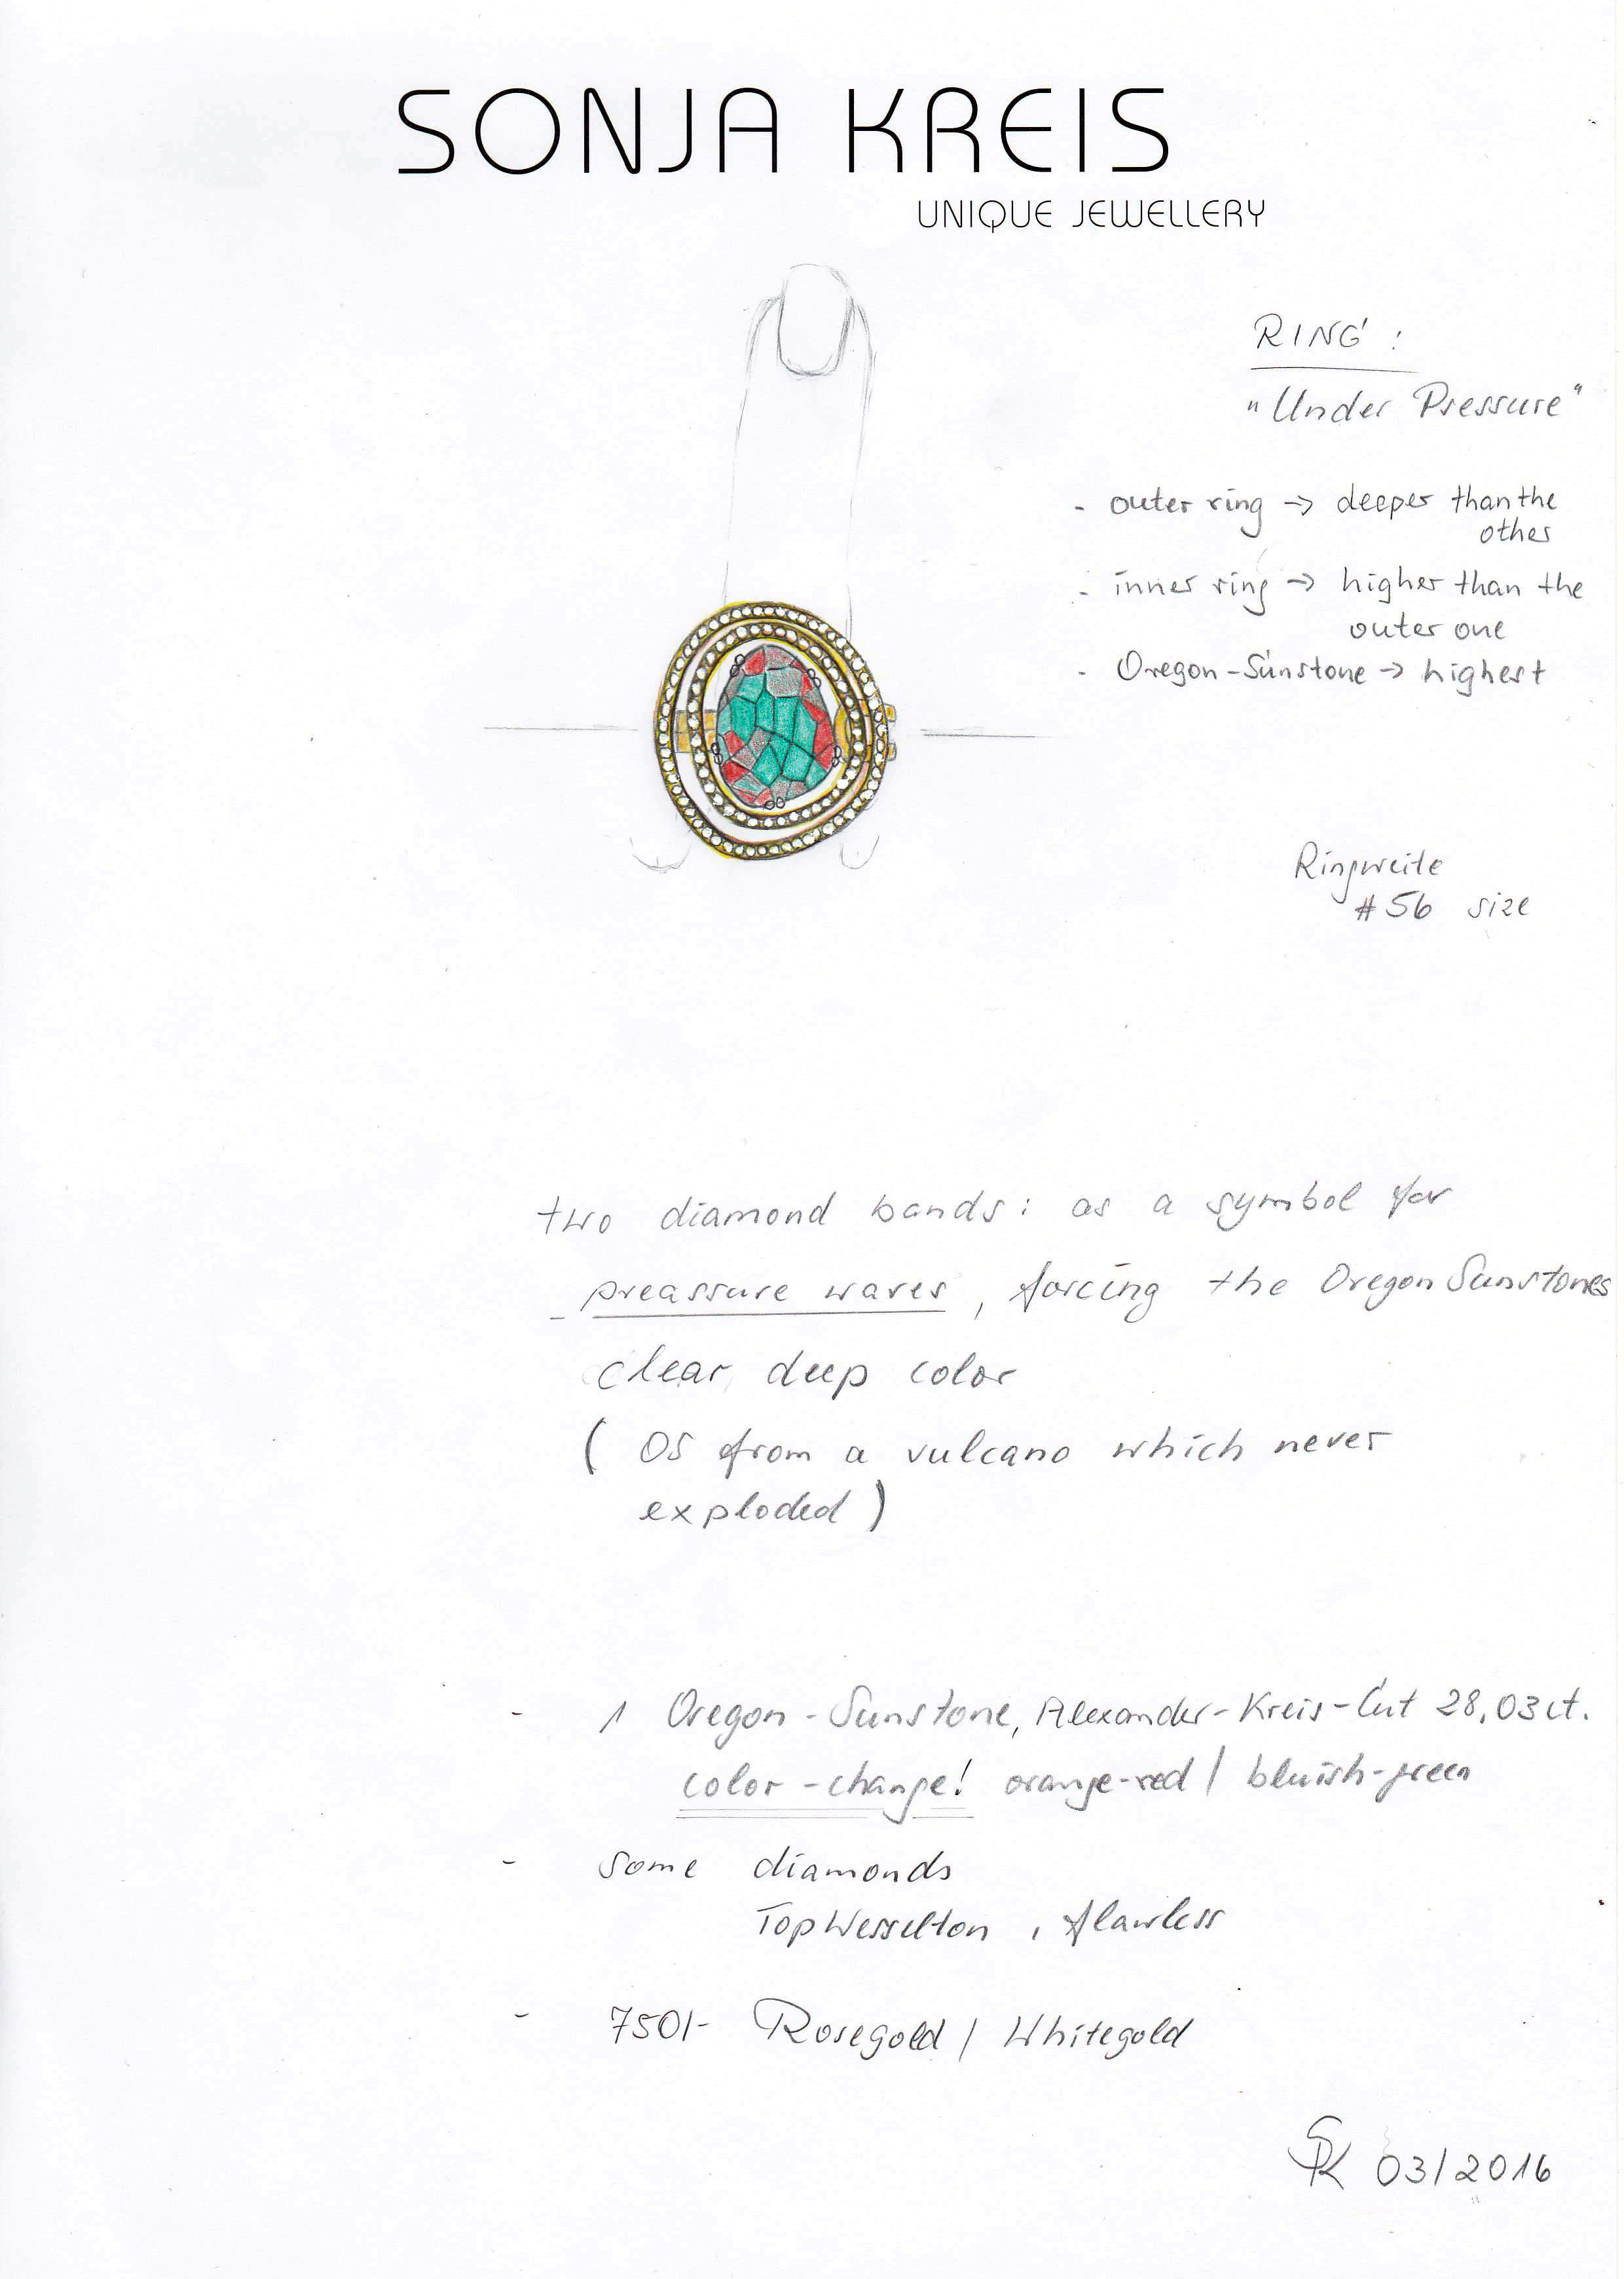 SONJA KREIS
UNIQUE JEWELLERY
RING:
"Under Pressure"
- outer ring → deeper than the
other
- inner ring → higher than the
outer one
- Oregon-Sunstone → highest
Ringweite
#56 size
two diamond bands: as a symbol for
- preassure waves, forcing the Oregon Sunstones
clear deep color
( OS from a vulcano which never
exploded )
- 1 Oregon-Sunstone, Alexander-Kreis-Cut 28,03ct.
color-change! orange-red / bluish-green
- some diamonds
TopWesselton, flawless
- 750/- Rosegold / Whitegold
SK 03/2016